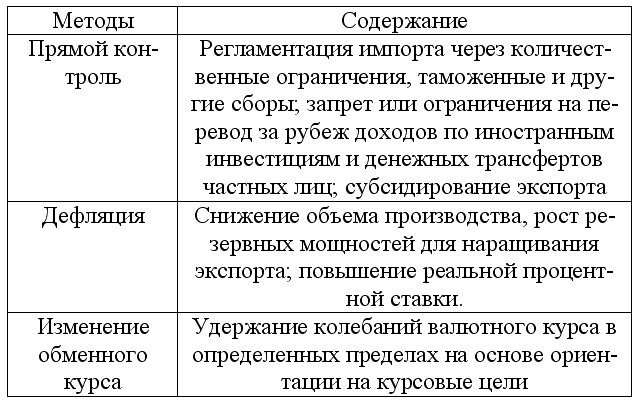 Методы Содержание
Прямой кон-
троль
Регламентация импорта через количест-
венные ограничения, таможенные и дру-
гие сборы; запрет или ограничения на пе-
ревод за рубеж доходов по иностранным
инвестициям и денежных трансфертов
частных лиц; субсидирование экспорта
Дефляция
Снижение объема производства, рост ре-
зервных мощностей для наращивания
экспорта; повышение реальной процент-
ной ставки.
Изменение
обменного
курса
Удержание колебаний валютного курса в
определенных пределах на основе ориен-
тации на курсовые цели